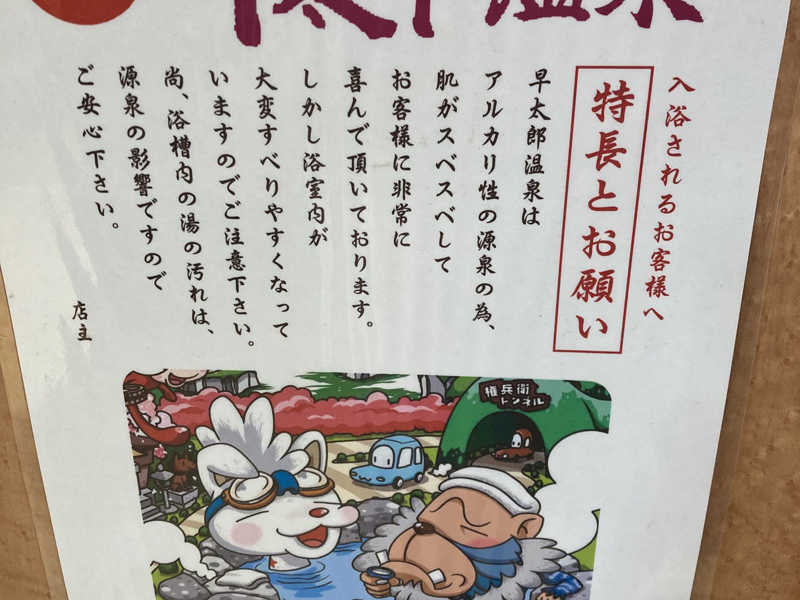 入浴されるお客様へ
特長とお願い
早太郎温泉は
アルカリ性の源泉の為、
肌がスベスベして
お客様に非常に
喜んで頂いております。
しかし浴室内が
大変すべりやすくなって
いますのでご注意下さい。
尚、浴槽内の湯の汚れは、
源泉の影響ですので
ご安心下さい。
店主
権兵衛
トンネル